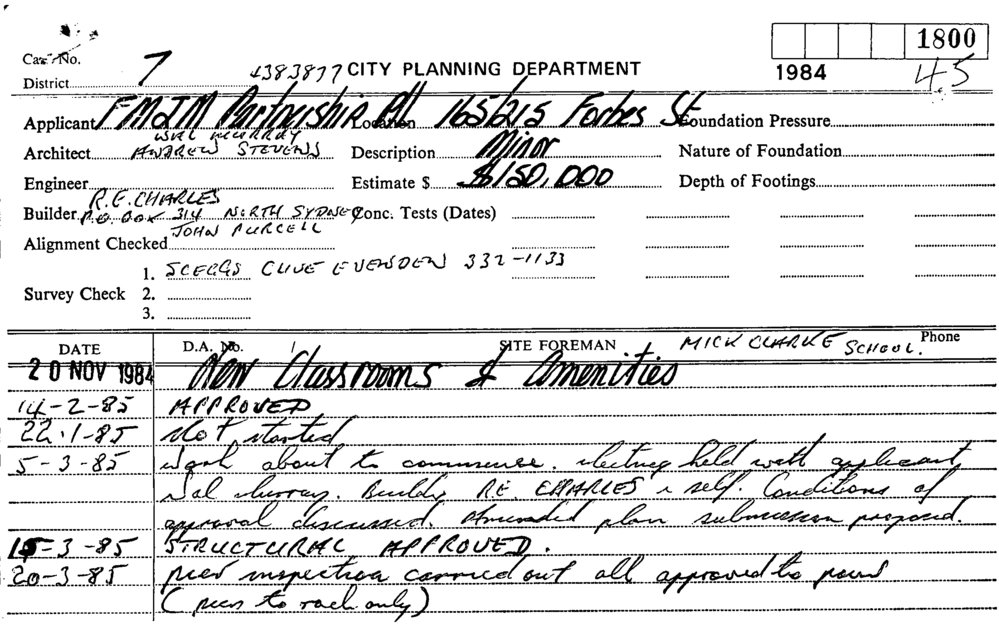 1800
Case No. 7 4383877 CITY PLANNING DEPARTMENT 1984 45
District
Applicant FMJM Partnership P/L Location 165/215 Forbes St Foundation Pressure
WAL MURRAY
Architect ANDREW STEVENS Description Minor Nature of Foundation
Engineer Estimate $ $150,000 Depth of Footings
R.E. CHARLES
Builder P.O. BOX 314 NORTH SYDNEY Conc. Tests (Dates)
JOHN PURCELL
Alignment Checked
1. SCEGGS CLIVE EVENDEN 332-1133
Survey Check 2.
3.
DATE D.A. No. SITE FOREMAN MICK CLARKE SCHOOL. Phone
20 NOV 1984 New Classrooms & Amenities
14-2-85 APPROVED
22.1-85 Not started
5-3-85 Work about to commence. Meeting held with applicant
Wal Murray. Builder RE. CHARLES & self. Conditions of
approval discussed. Amended plan submission proposed.
15-3-85 STRUCTURAL APPROVED.
20-3-85 pier inspection carried out all approved to pour
(piers to rock only)